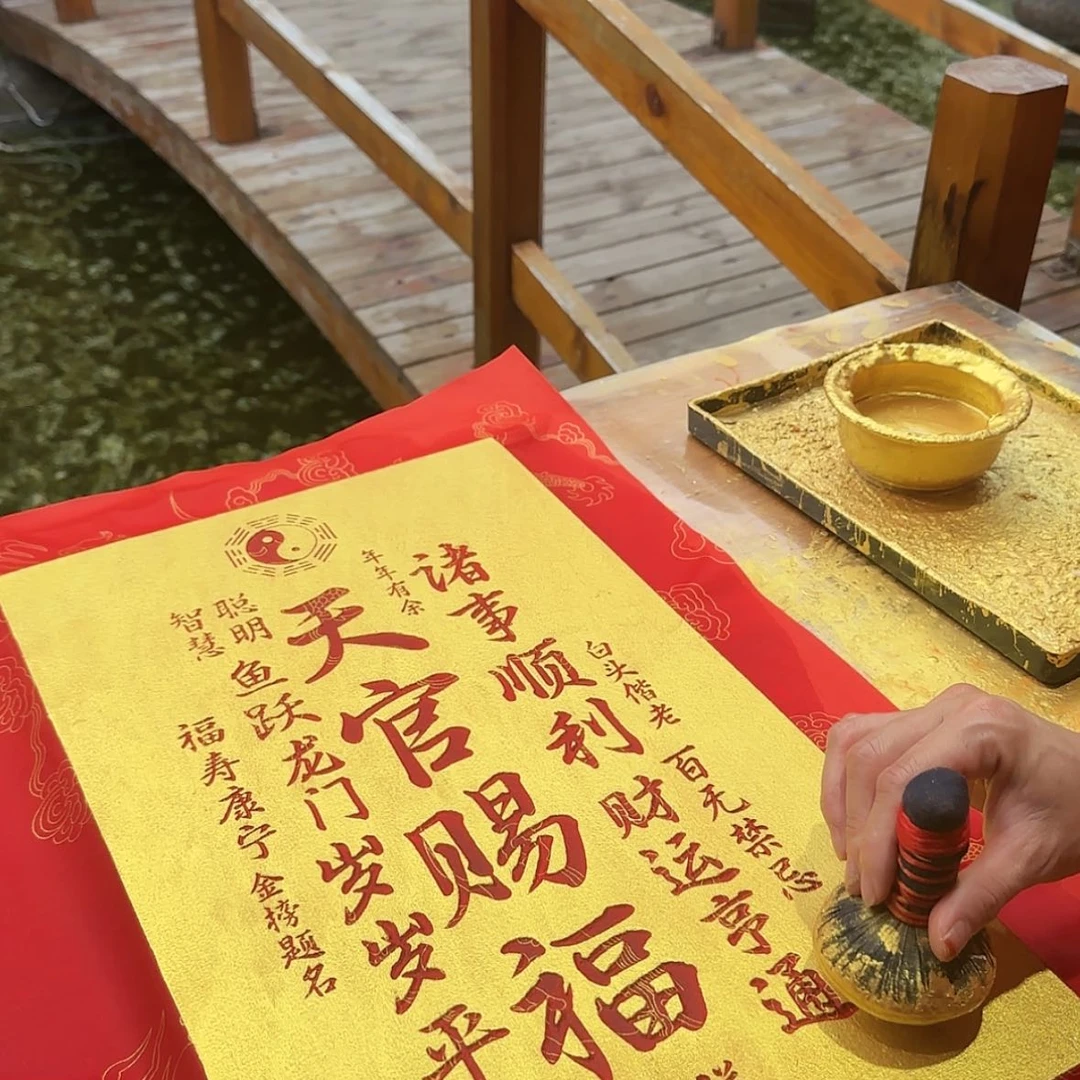 白头偕老 百无禁忌
诸事顺利 财运亨通
年年有余
天官赐福
聪明
智慧
鱼跃龙门 岁岁平
福寿康宁 金榜题名